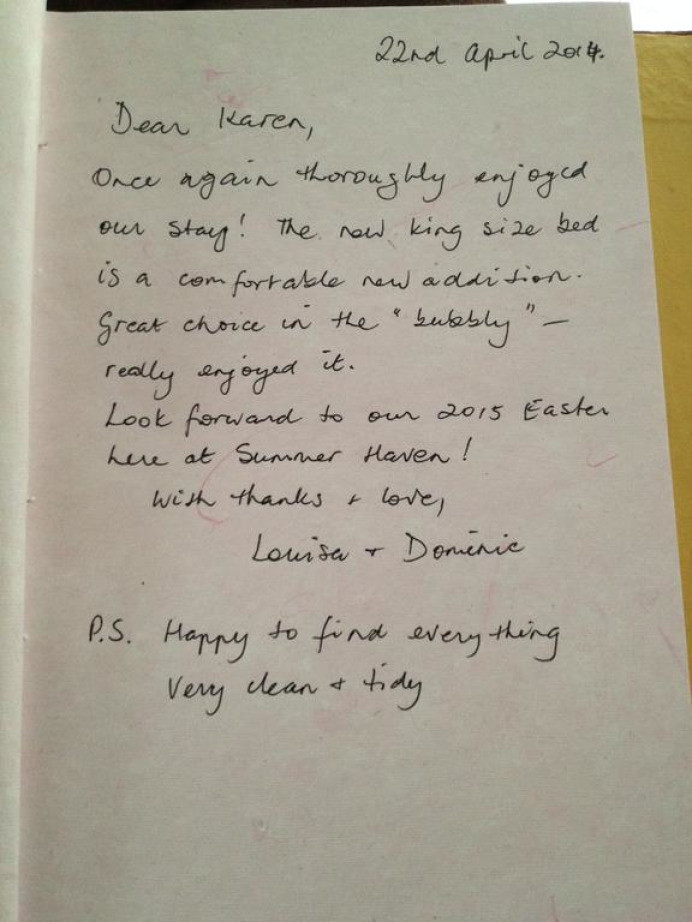 22nd April 2014.
Dear Karen,
Once again thoroughly enjoyed
our stay! The new king size bed
is a comfortable new addition.
Great choice in the "bubbly" –
really enjoyed it.
Look forward to our 2015 Easter
here at Summer Haven!
With thanks + love,
Louisa + Dominic
P.S. Happy to find everything
very clean + tidy